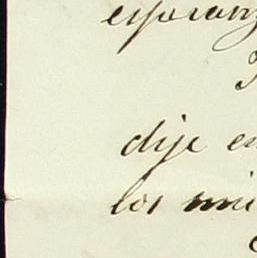 esperanz
dije en
los mi